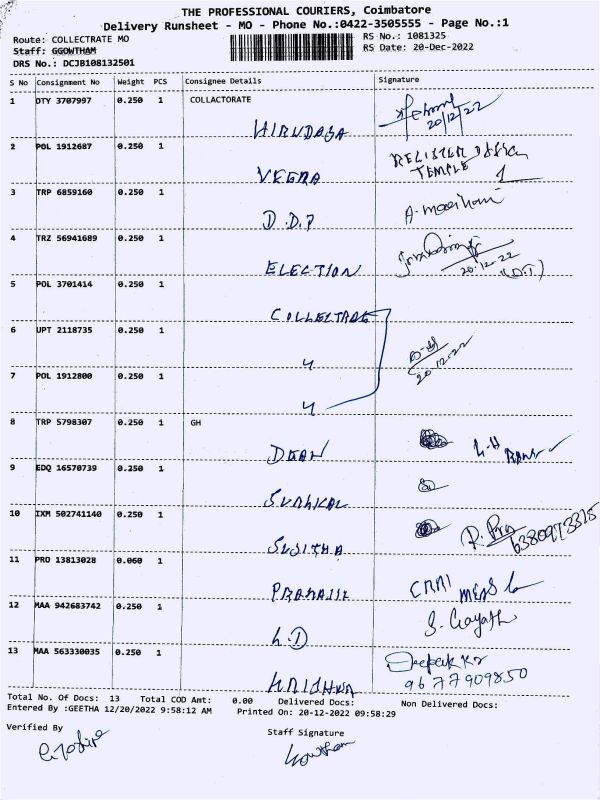 THE PROFESSIONAL COURIERS, Coimbatore
Delivery Runsheet - MO - Phone No.:0422-3505555 - Page No.:1
Route: COLLECTRATE MO
RS No.: 1081325
Staff: GGOWTHAM
RS Date: 20-Dec-2022
DRS No.: DCJB108132501
S No Consignment No Weight PCS Consignee Details Signature
1 DTY 3707997 0.250 1 COLLACTORATE
HIRUDAGA
20/12/22
2 POL 1912687 0.250 1
VEERA
TEMPLE
3 TRP 6859160 0.250 1
D.D.P
4 TRZ 56941689 0.250 1
ELECTION
20.12.22
5 POL 3701414 0.250 1
COLLECTRATE
6 UPT 2118735 0.250 1
20.12.22
7 POL 1912800 0.250 1
8 TRP 5798307 0.250 1 GH
DEAN
9 EDQ 16570739 0.250 1
10 IXM 502741140 0.250 1
SUJITHA
11 PRO 13813028 0.060 1
12 MAA 942683742 0.250 1
S. Gayath
13 MAA 563330035 0.250 1
Deepak Kr
9677909850
Total No. Of Docs: 13 Total COD Amt: 0.00 Delivered Docs: Non Delivered Docs:
Entered By :GEETHA 12/20/2022 9:58:12 AM Printed On: 20-12-2022 09:58:29
Verified By
Staff Signature
Gowtham